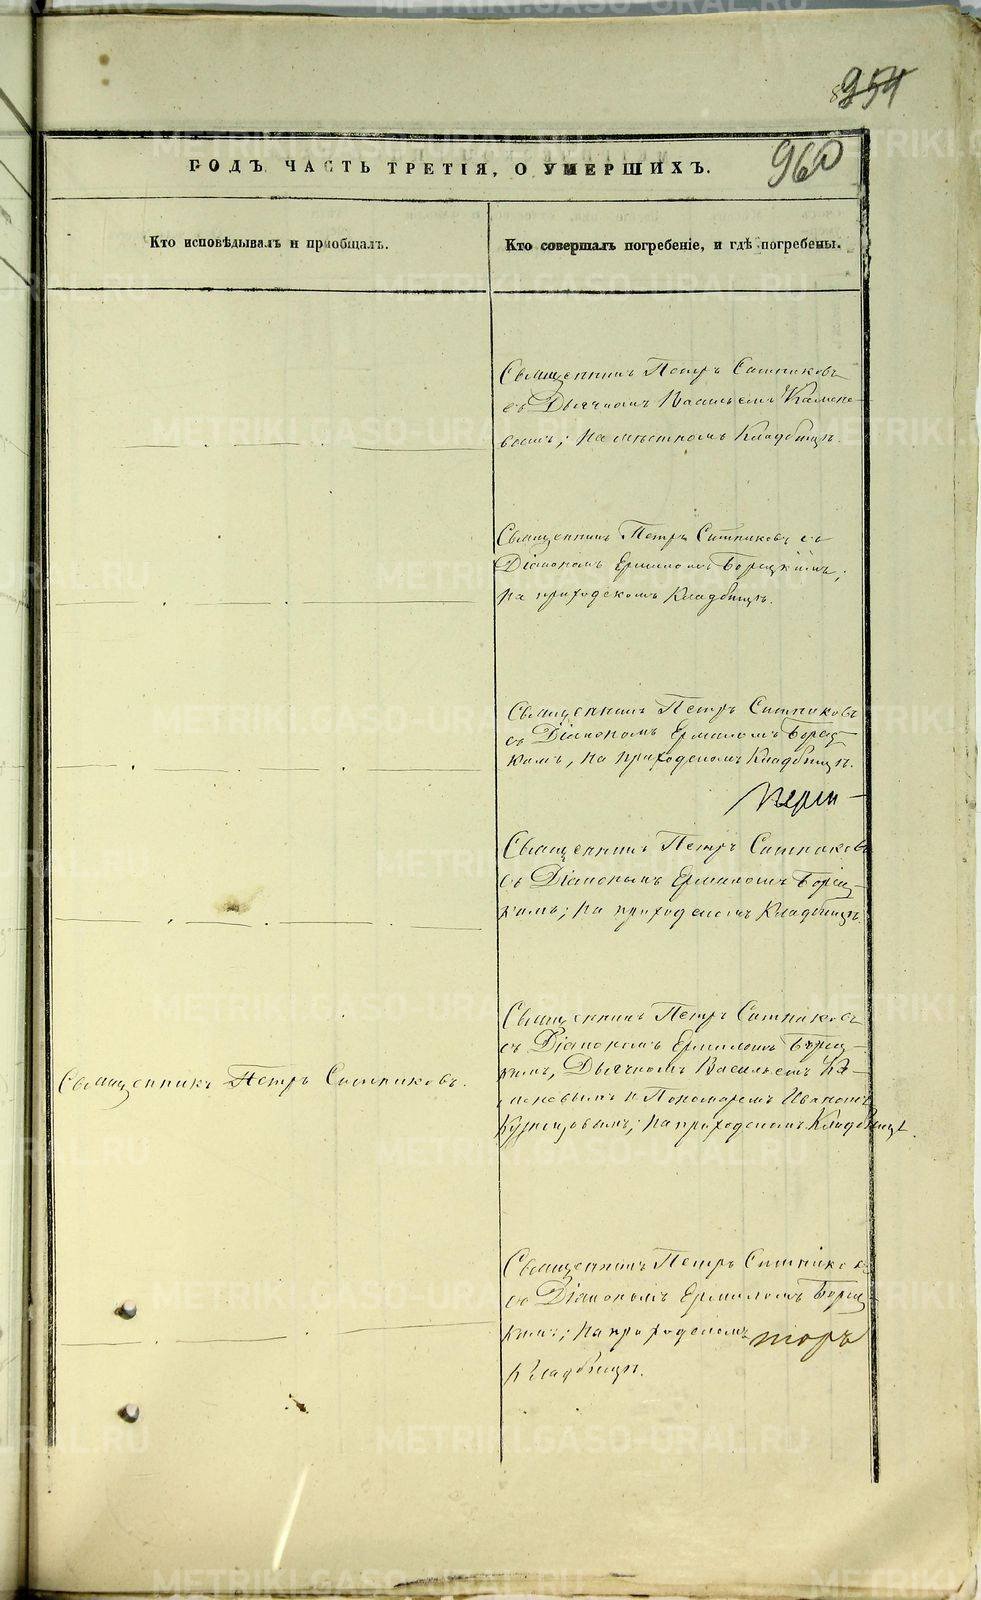 954
960
ГОДЪ ЧАСТЬ ТРЕТІЯ, О УМЕРШИХЪ.
Кто исповѣдывалъ и пріобщалъ.
Кто совершалъ погребеніе, и гдѣ погребены.
Священникъ Петръ Ситниковъ
съ Дьячкомъ Васильемъ Камене-
вымъ; на мѣстномъ Кладбищѣ.
Священникъ Петръ Ситниковъ съ
Діакономъ Ермиломъ Борецкимъ;
на приходскомъ Кладбищѣ.
Священникъ Петръ Ситниковъ
съ Діакономъ Ермиломъ Борец-
кимъ, на приходскомъ Кладбищѣ.
Священникъ Петръ Ситниковъ
съ Діакономъ Ермиломъ Борец-
кимъ; на приходскомъ Кладбищѣ.
Священникъ Петръ Ситниковъ.
Священникъ Петръ Ситниковъ
съ Діакономъ Ермиломъ Борец-
кимъ, Дьячкомъ Васильемъ Ка-
меновымъ и Пономаремъ Иваномъ
Кузнецовымъ; на приходскомъ Кладбищѣ.
Священникъ Петръ Ситниковъ
со Діакономъ Ермиломъ Борец-
кимъ; на приходскомъ
Кладбищѣ.
METRIKI.GASO-URAL.RU